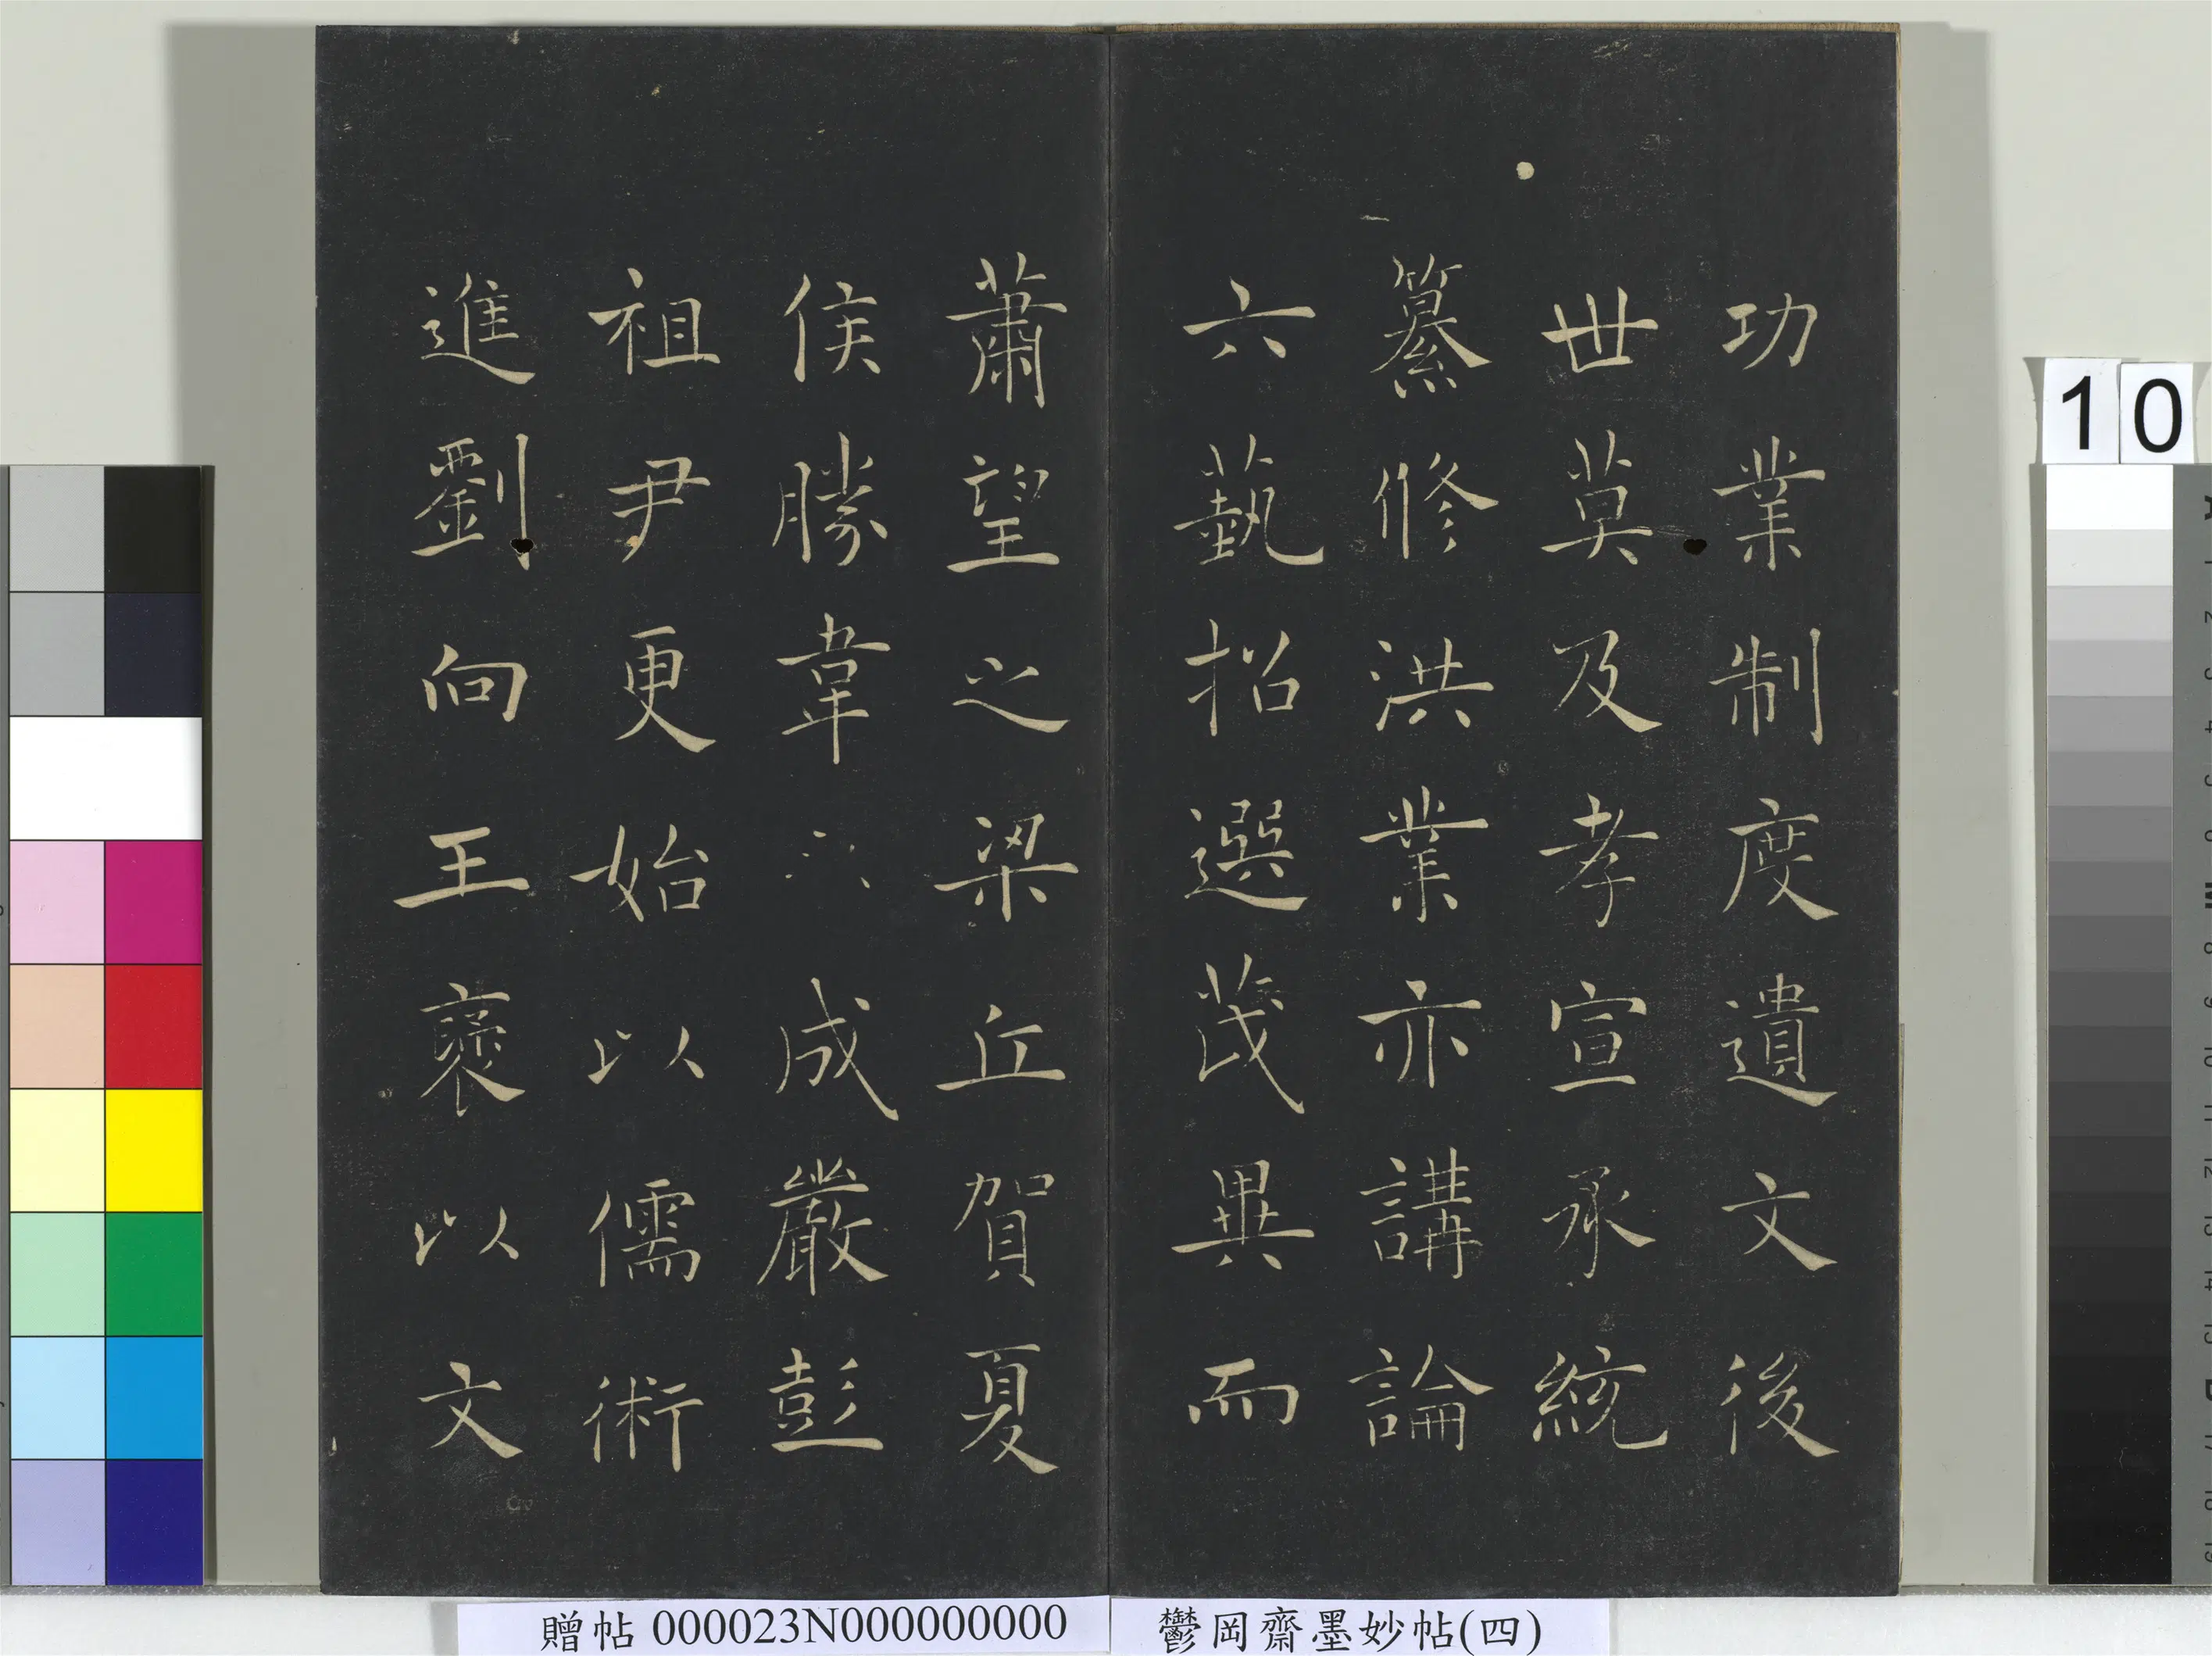 功業制度遺文後
世莫及孝宣承統
纂修洪業亦講論
六藝招選茂異而
蕭望之梁丘賀夏
侯勝韋成嚴彭
祖尹更始以儒術
進劉向王褒以文
10
鬱岡齋墨妙帖(四)
贈帖 000023N000000000